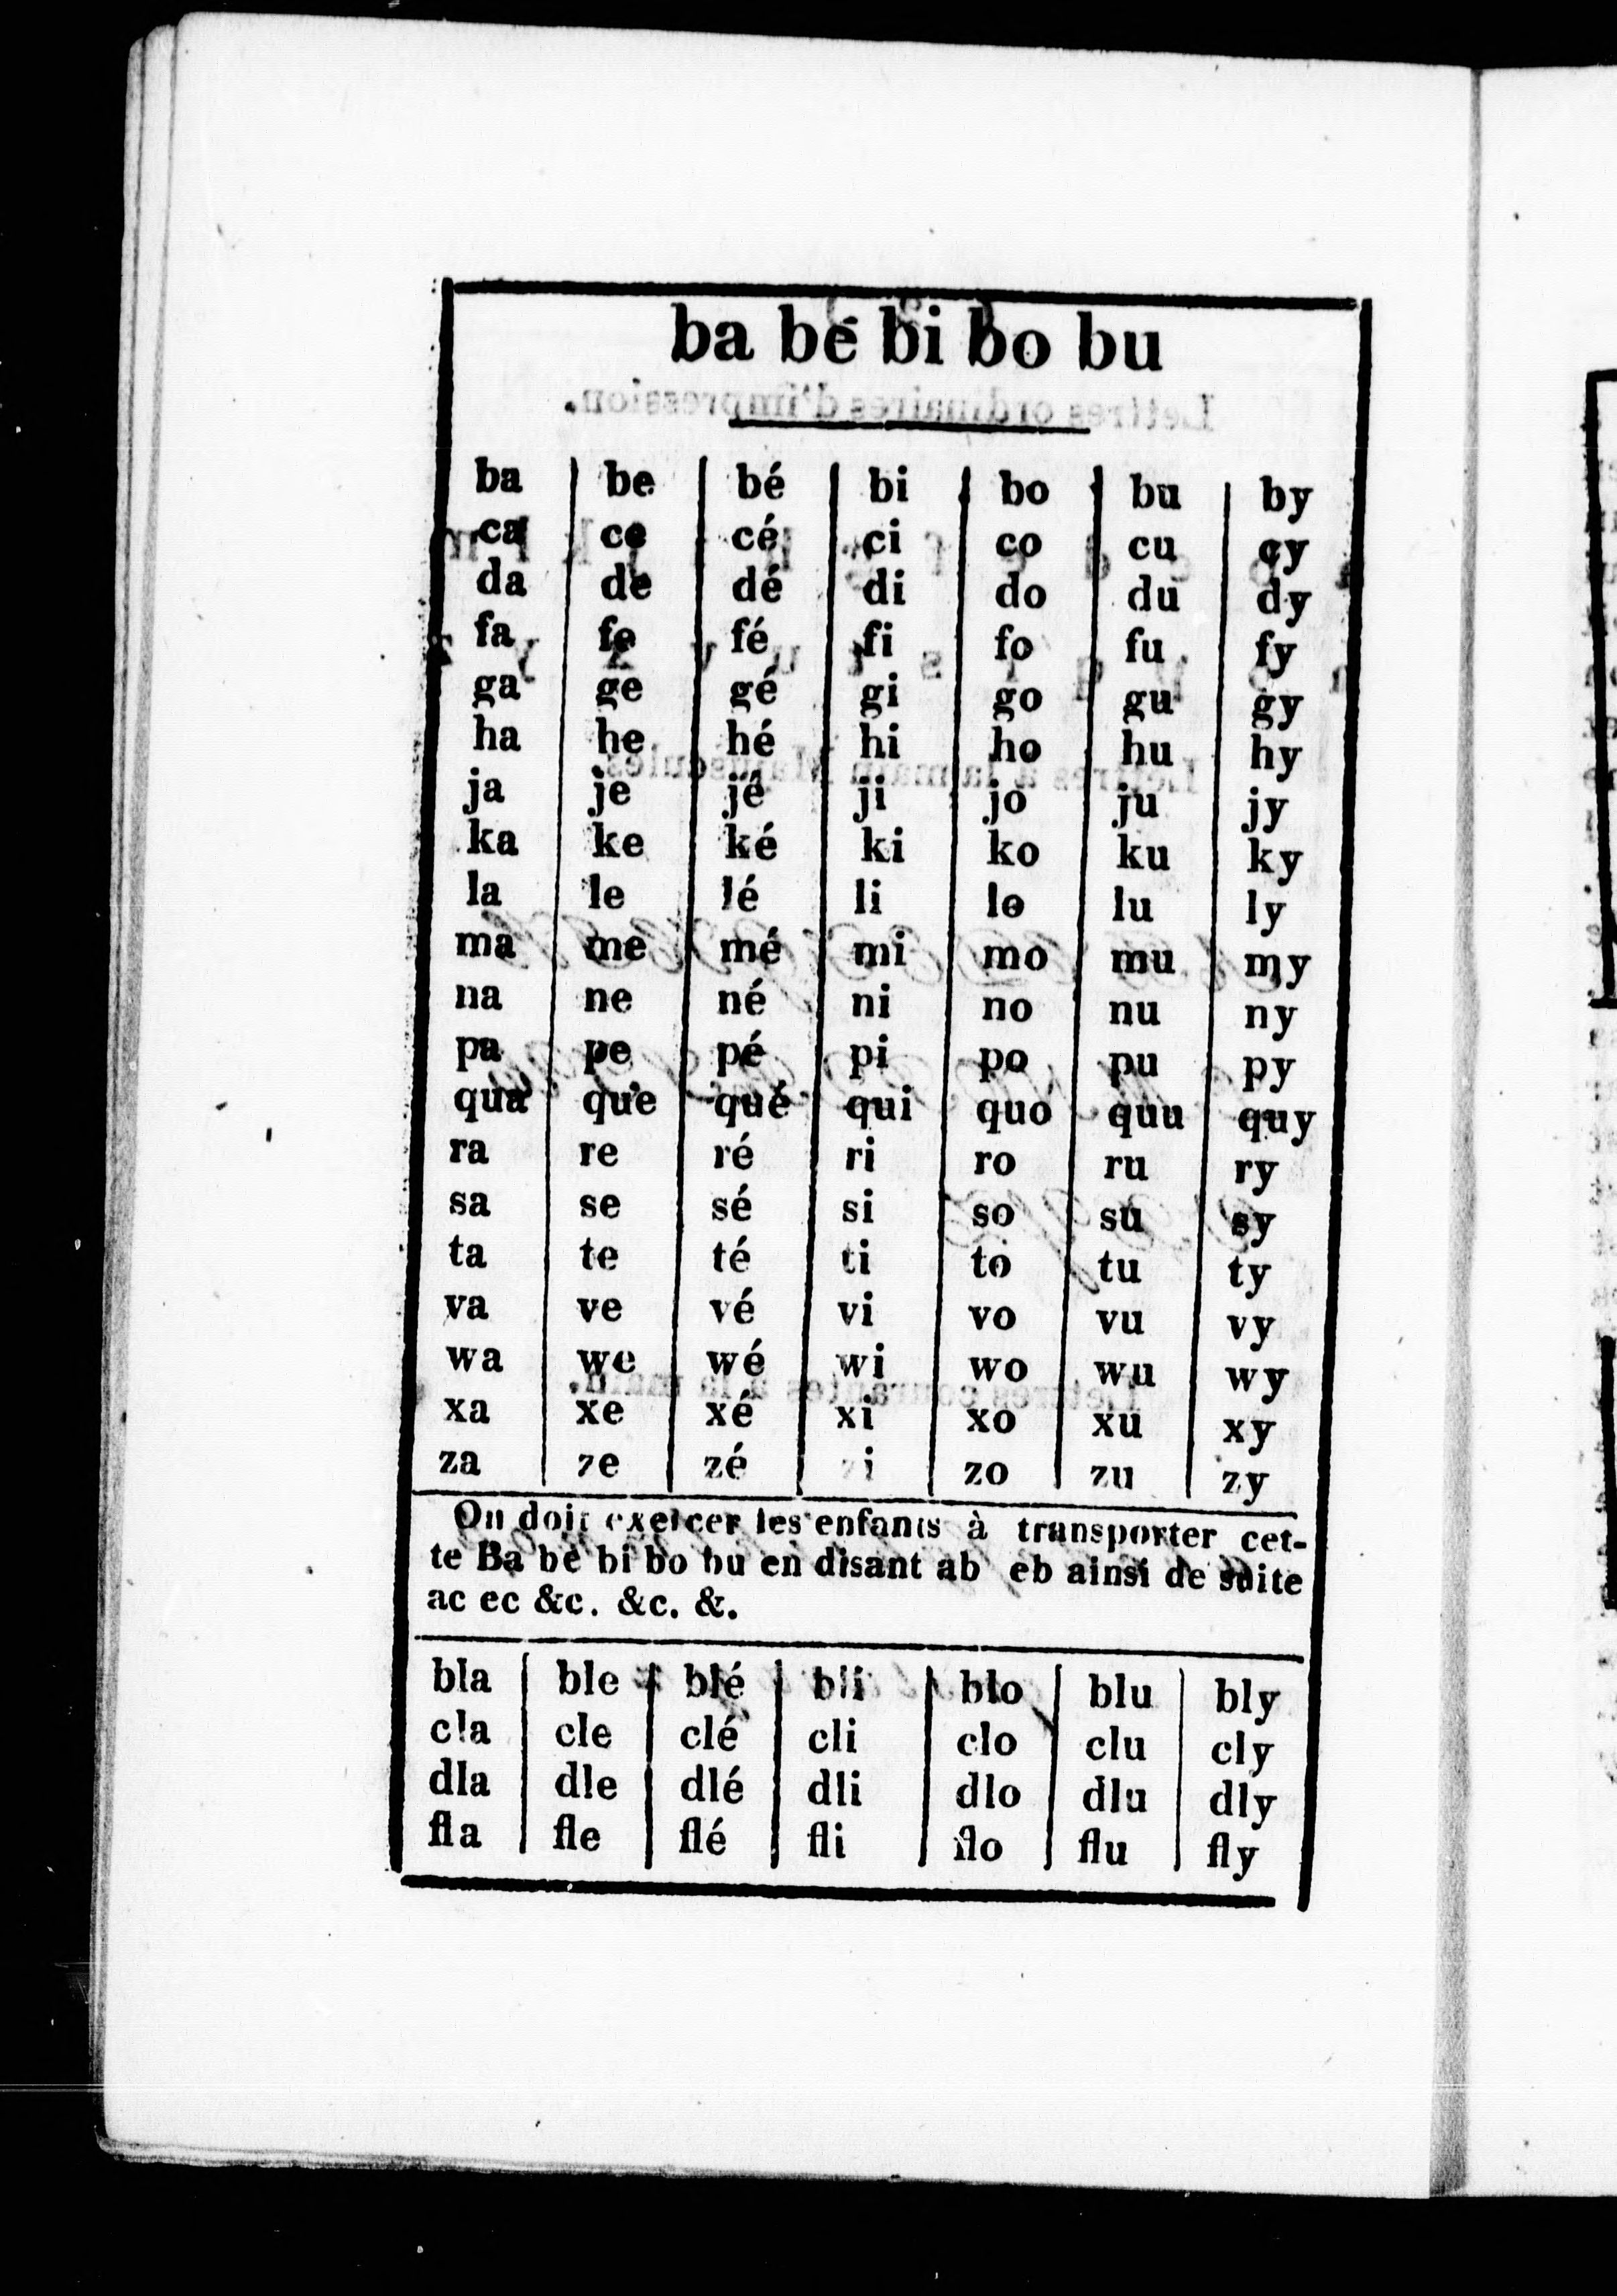 ba bé bi bo bu
ba be bé bi bo bu by
ca ce cé ci co cu cy
da de dé di do du dy
fa fe fé fi fo fu fy
ga ge gé gi go gu gy
ha he hé hi ho hu hy
ja je jé ji jo ju jy
ka ke ké ki ko ku ky
la le lé li lo lu ly
ma me mé mi mo mu my
na ne né ni no nu ny
pa pe pé pi po pu py
qua que qué qui quo quu quy
ra re ré ri ro ru ry
sa se sé si so su sy
ta te té ti to tu ty
va ve vé vi vo vu vy
wa we wé wi wo wu wy
xa xe xé xi xo xu xy
za ze zé zi zo zu zy
On doit exercer les enfants à transporter cet-
te Ba be bi bo bu en disant ab eb ainsi de suite
ac ec &c. &c. &.
bla ble blé bli blo blu bly
cla cle clé cli clo clu cly
dla dle dlé dli dlo dlu dly
fla fle flé fli flo flu fly